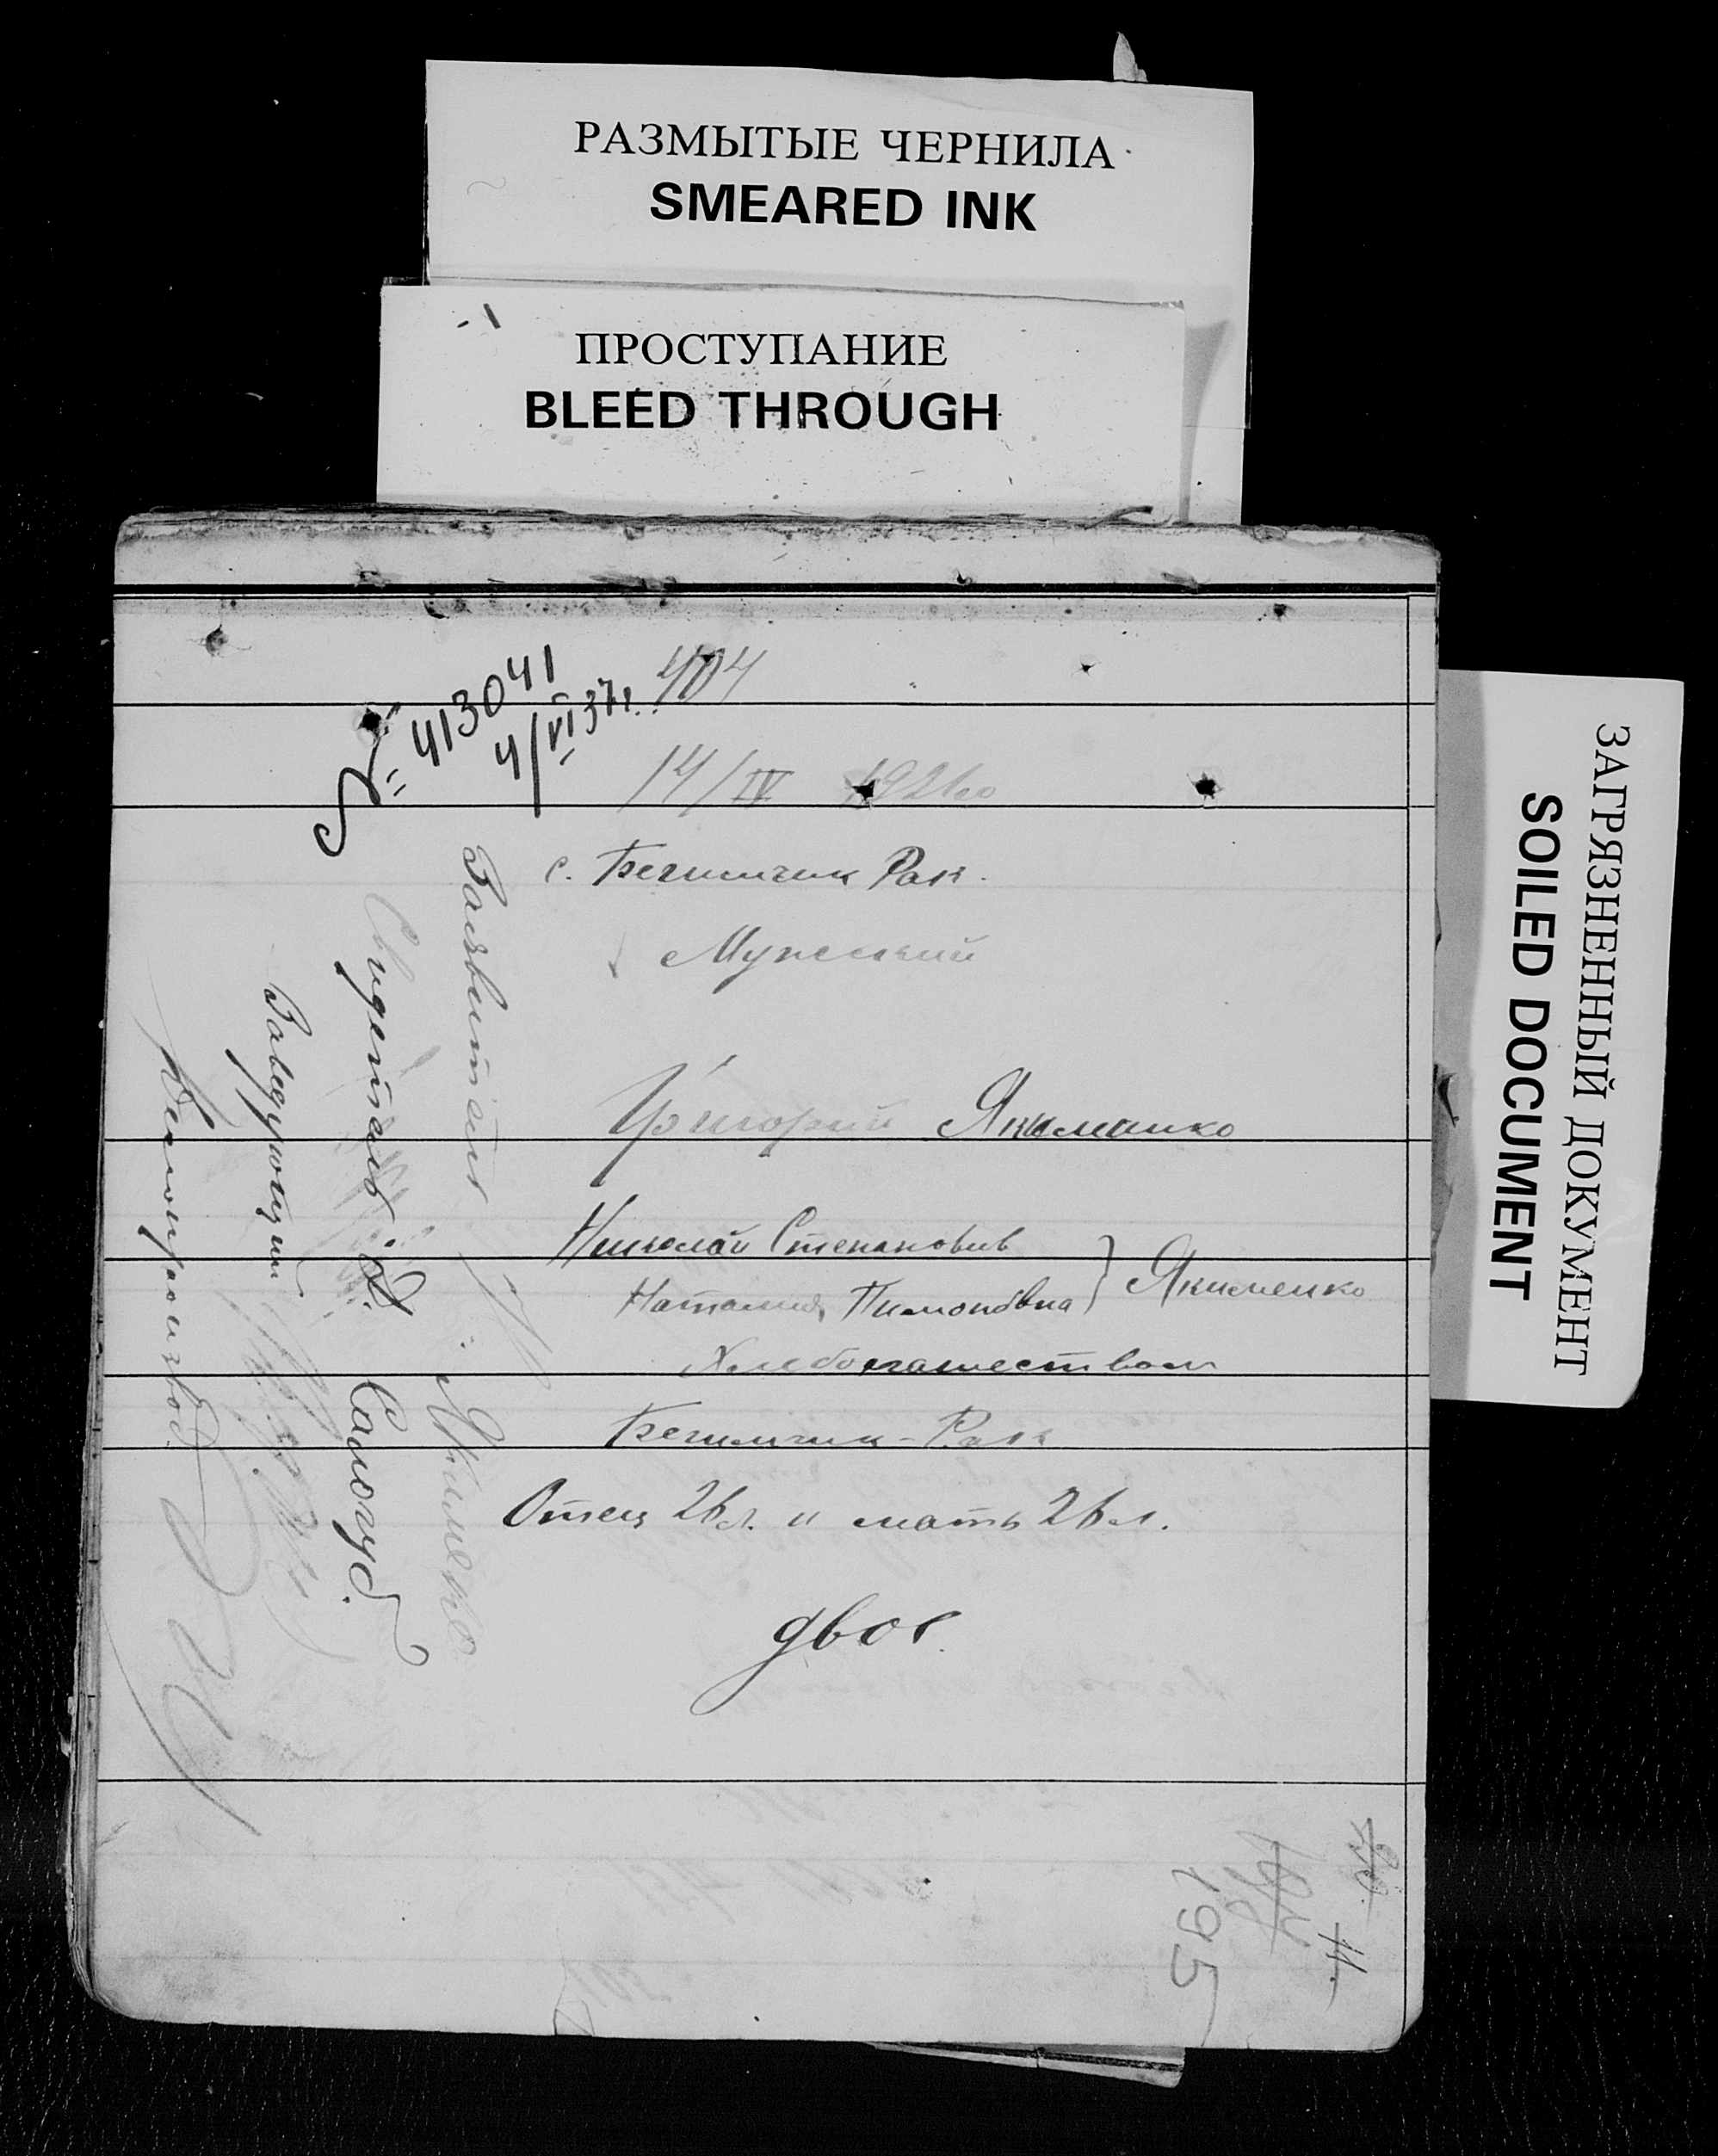 РАЗМЫТЫЕ ЧЕРНИЛА
SMEARED INK
ПРОСТУПАНИЕ
BLEED THROUGH
ЗАГРЯЗНЕННЫЙ ДОКУМЕНТ
SOILED DOCUMENT
№ 413041
4/VI 37г.
404
14/IV 1921го
с. Бегимчик Рак.
Мужский
Григорий Якименко
Николай Степанович
Наталия Пимоновна } Якименко
Хлебопашеством
Бегимчик-Рак
Отец 26 л. и мать 26 л.
двое
Заявитель Якименко
Свидетель: Д. Салогуб.
Заведующий
Делопроизвод.
195
11.